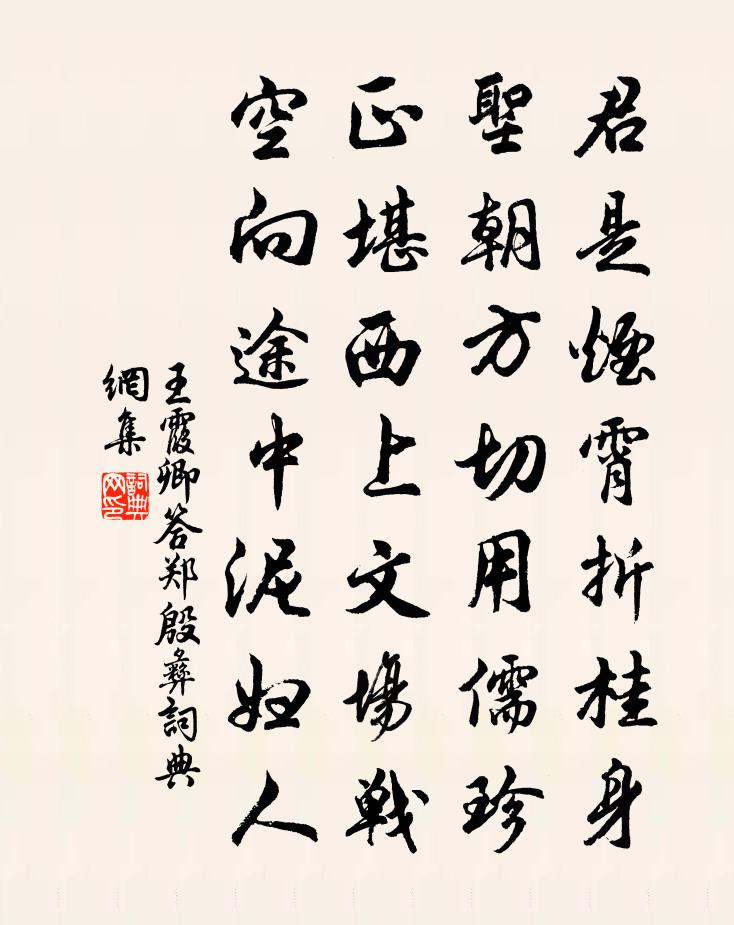 君是煙霄折桂身
聖朝方切用儒珍
正堪西上文場戰
空向途中泥婦人
王霞卿答郑殷彝詞典
網集
詞典
网印